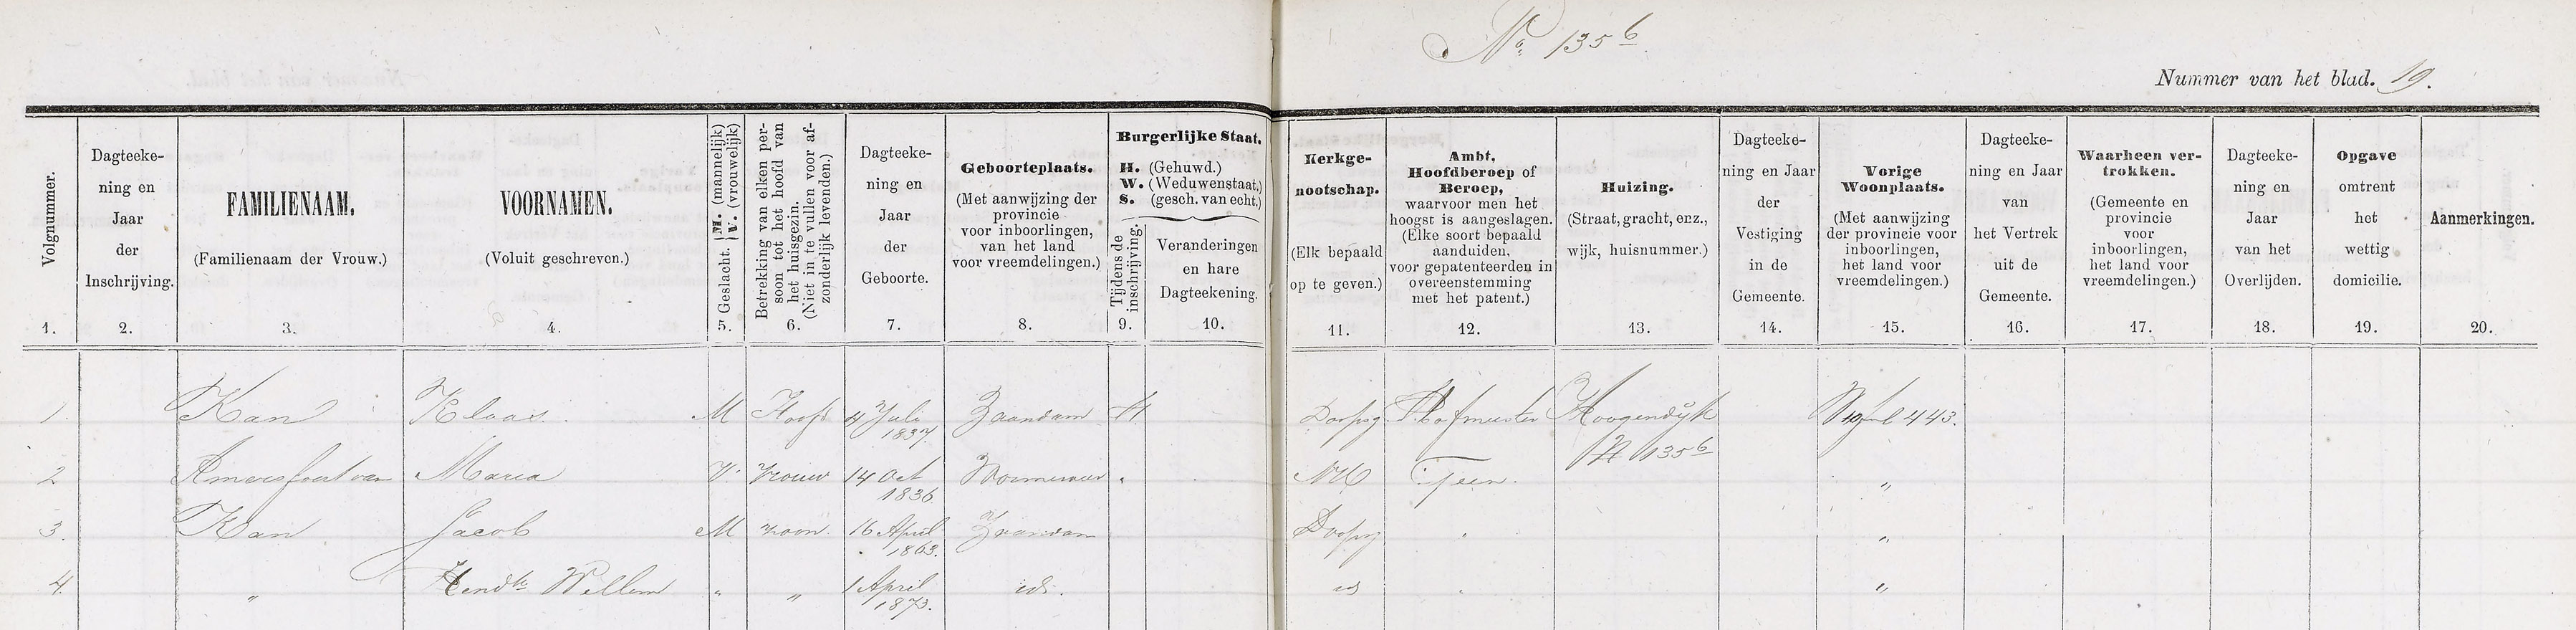 No. 135 b
Nummer van het blad. 19.
Volgnummer.
1.
Dagteeke-
ning en
Jaar
der
Inschrijving.
2.
FAMILIENAAM.
(Familienaam der Vrouw.)
3.
VOORNAMEN.
(Voluit geschreven.)
4.
Geslacht. { M. (mannelijk) V. (vrouwelijk)
5.
Betrekking van elken per-
soon tot het hoofd van
het huisgezin.
(Niet in te vullen voor af-
zonderlijk levenden.)
6.
Dagteeke-
ning en
Jaar
der
Geboorte.
7.
Geboorteplaats.
(Met aanwijzing der
provincie
voor inboorlingen,
van het land
voor vreemdelingen.)
8.
Burgerlijke Staat.
H. (Gehuwd.)
W. (Weduwenstaat.)
S. (gesch. van echt.)
Tijdens de
inschrijving.
9.
Veranderingen
en hare
Dagteekening.
10.
Kerkge-
nootschap.
(Elk bepaald
op te geven.)
11.
Ambt,
Hoofdberoep of
Beroep,
waarvoor men het
hoogst is aangeslagen.
(Elke soort bepaald
aanduiden,
voor gepatenteerden in
overeenstemming
met het patent.)
12.
Huizing.
(Straat, gracht, enz.,
wijk, huisnummer.)
13.
Dagteeke-
ning en Jaar
der
Vestiging
in de
Gemeente.
14.
Vorige
Woonplaats.
(Met aanwijzing
der provincie voor
inboorlingen,
het land voor
vreemdelingen.)
15.
Dagteeke-
ning en Jaar
van
het Vertrek
uit de
Gemeente.
16.
Waarheen ver-
trokken.
(Gemeente en
provincie
voor
inboorlingen,
het land voor
vreemdelingen.)
17.
Dagteeke-
ning en
Jaar
van het
Overlijden.
18.
Opgave
omtrent
het
wettig
domicilie.
19.
Aanmerkingen.
20.
1. Kan Klaas. M Hoofd 4 Juli 1837. Zaandam H. Doopsg Hofmeester Hoogendijk N 135 b 443.
2 Amersfoort van Maria V. vrouw 14 Oct 1836 Wormerveer " NH Geen. "
3. Kan Jacob M zoon. 16 April 1863. Zaandam Doopsg "
4. " Hendk Willem " " 1 April 1873. id. id "